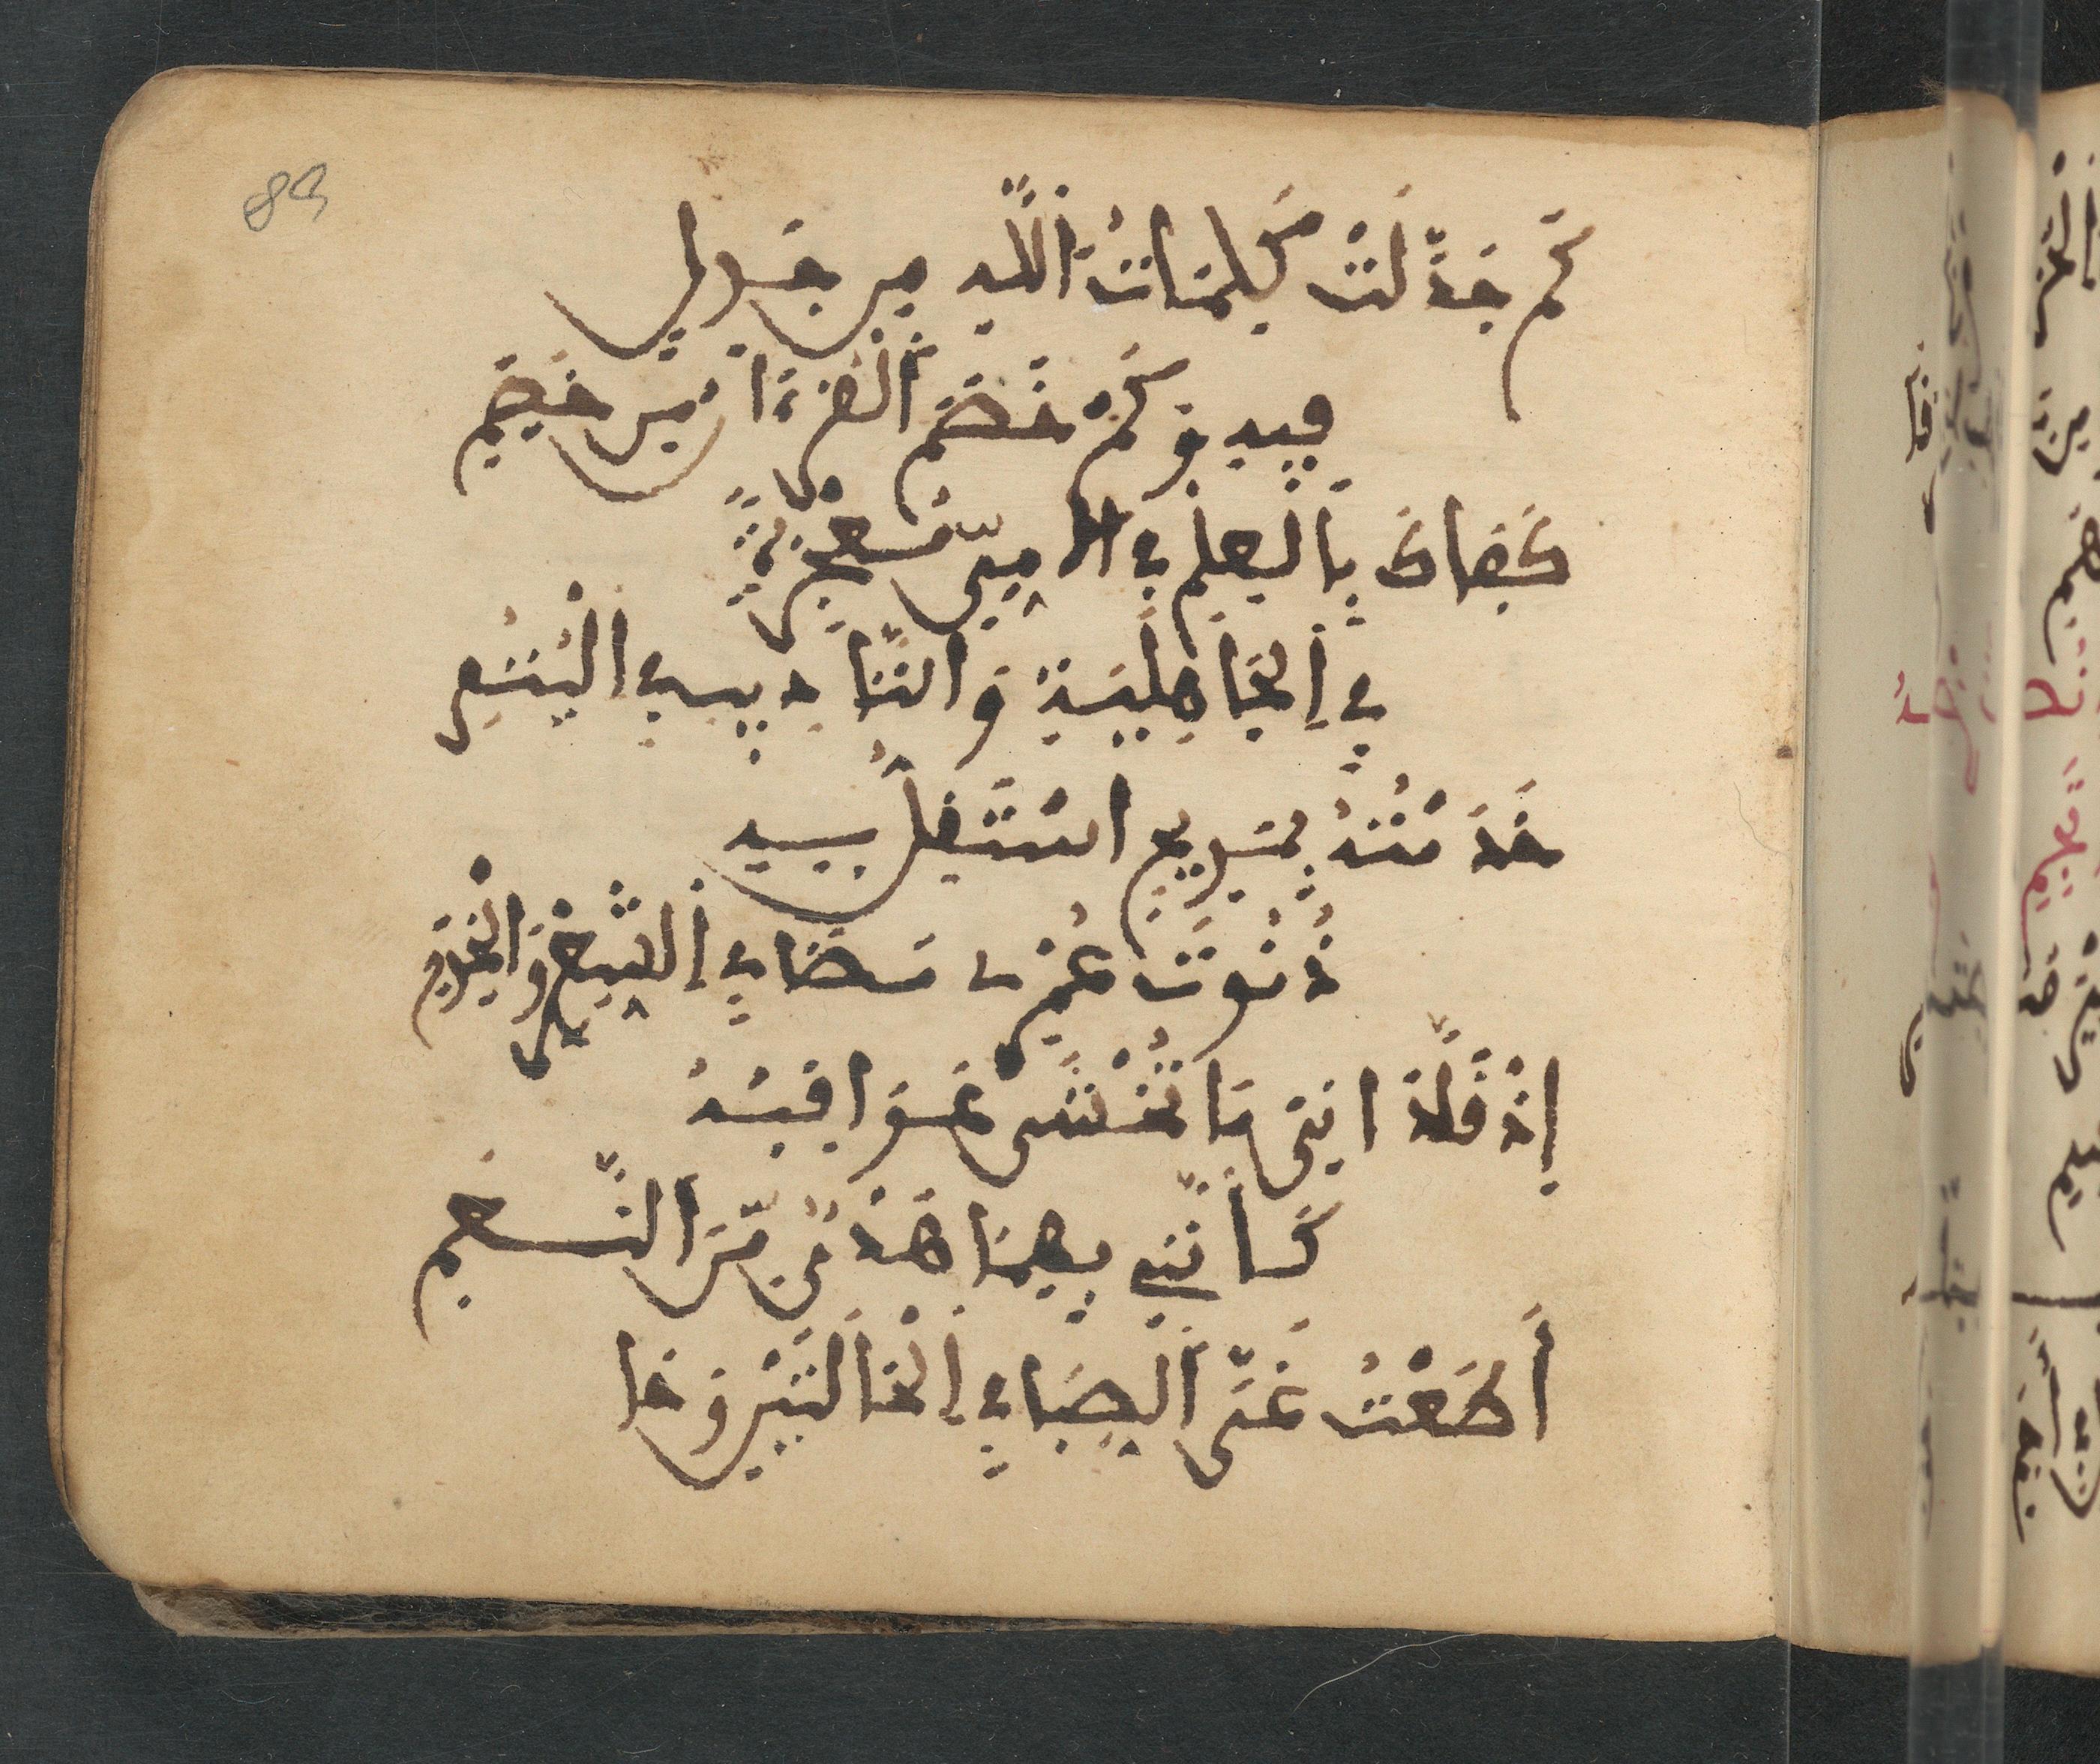 89
كَمْ جَدَّلَتْ كَلِمَاتُ اللَّهِ مِن جَدَلِ
فِيهِ وَكَمْ خَصَمَ الْقُرْءَانُ مِن خَصِمِ
كَفَاكَ بِالْعِلْمِ فِي الامِّىِّ مُعْجِزَةً
فِي الْجَاهِلِيَةِ وَالتَّادِيبِ فِي الْيُتُمِ
خَدَمْتُهُ بِمَدِيحٍ اسْتَقِيلُ بِهِ
ذُنُوبَ عُمْرٍ مَضَى فِي الشِّعْرِ وَالْخِدَمِ
إِذْ قَلَّدَانِىَ مَا تُخْشَى عَوَاقِبُهُ
كَأَنَّنِي بِهِمَا هَدْىٌ مِّنَ النَّعَمِ
أَطَعْتُ غَىَّ الصِّبَا فِي الْحَالَتَيْنِ وَمَا